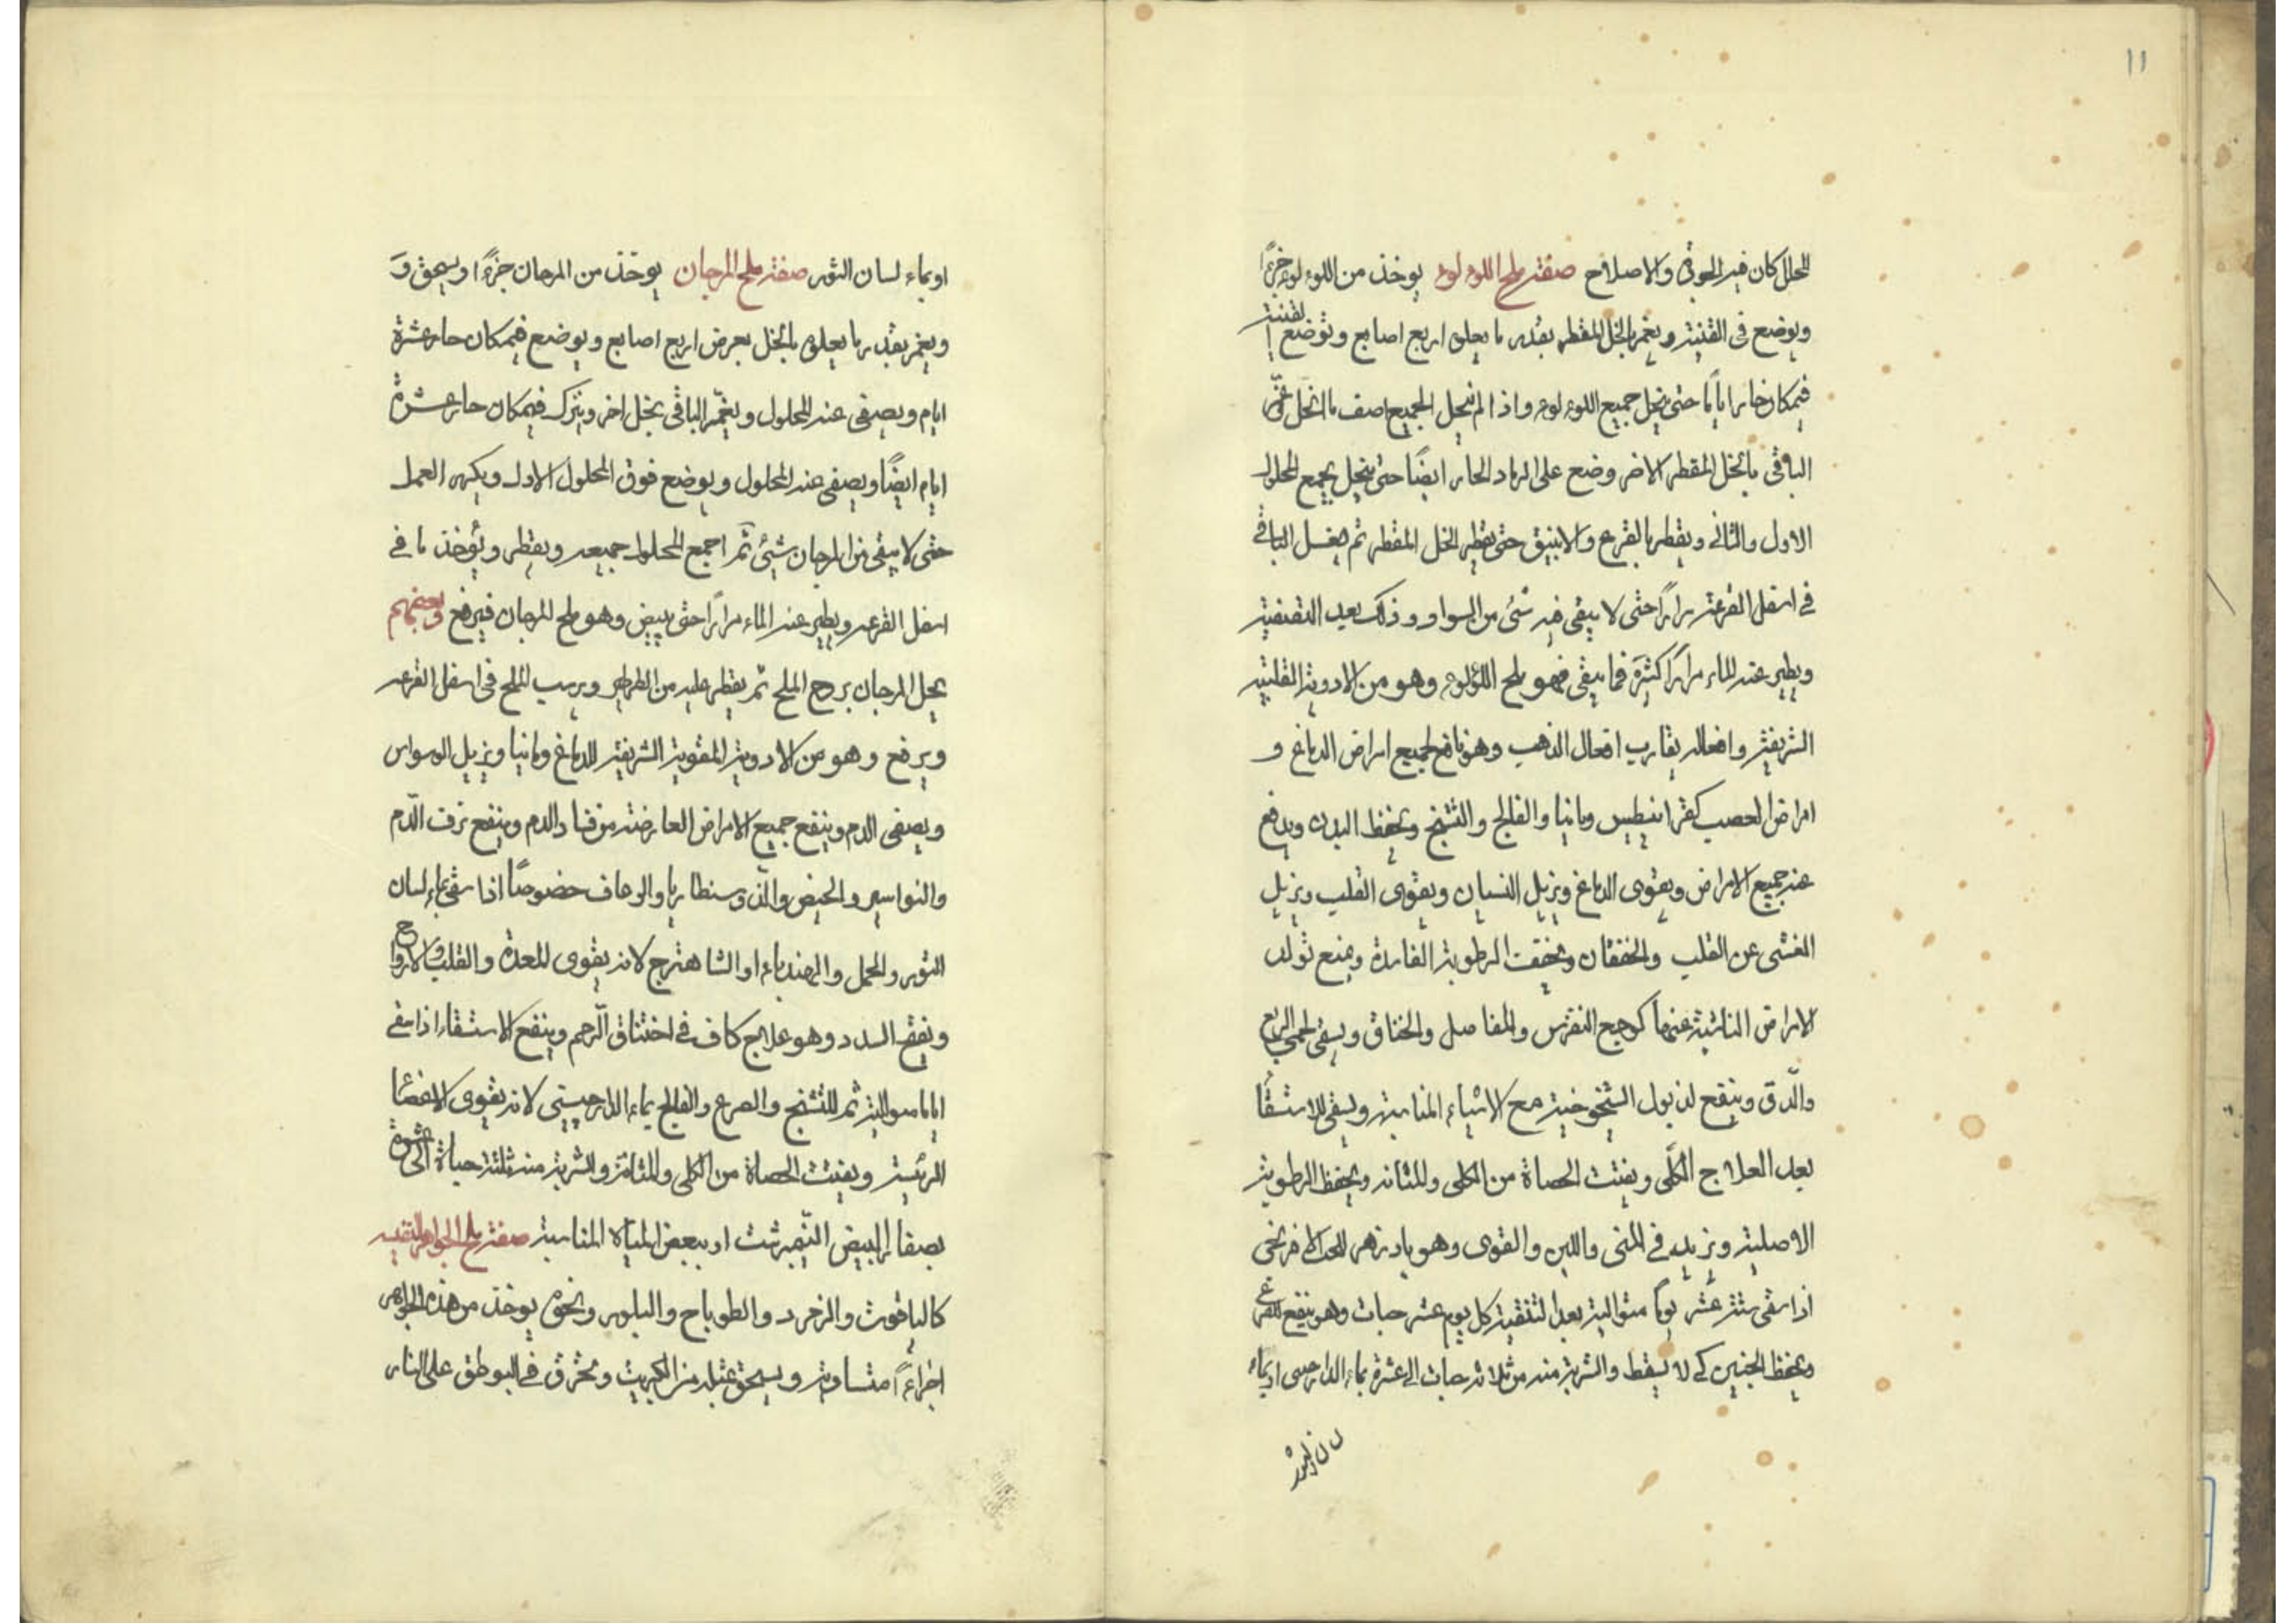 ١١
المحلل كان فيه الجودة والاصلاح صفة ملح اللوءلوء يوخذ من اللوءلوء جزءًا
ويوضع فى القنينة ويغمر بالخل المقطر بقدر ما يعلى اربع اصابع وتوضع القنينة
فى مكان حار اياما حتى ينحل جميع اللوءلوء واذا لم ينحل الجميع اصف ما انحل وغمّر
الباقى بالخل المقطر الاخر وضع على الرماد الحار ايضًا حتى ينحل يجمع المحلول
الاول والثانى ويقطر بالقرع والانبيق حتى يقطر الخل المقطر ثم يغسل الباقى
فى اسفل القرعة مرارًا حتى لا يبقى فيه شئ من السواد وذلك بعيد التصفية
ويطير عنه الماء مرارًا كثيرة فما يبقى فهو ملح اللؤلوء وهو من الادوية القلبية
الشريفة وافعاله يقارب افعال الذهب وهو نافع لجميع امراض الدماغ و
امراض العصب كقرانيطيس ومانيا والفالج والتشنج ويحفظ البدن ويدفع
عنه جميع الامراض ويقوى الدماغ ويزيل النسيان ويقوى القلب ويزيل
الغشى عن القلب والخفقان ويخفف الرطوبة الفاسدة ويمنع تولد
الامراض الناشئة عنها كوجع النقرس والمفاصل والخناق ويسقى لحمى الربع
والدّق وينفع لذبول الشيخوخية مع الاشياء المناسبة ويسقى للاستسقا
بعد العلاج الكلّى ويفتت الحصاة من الكلى والمثانه ويحفظ الرطوبة
الاصلية ويزيد فى المنى واللبن والقوى وهو بادزهر للحب الافرنجى
اذا سقى ستة عشر يومًا متوالية بعد التنقية كل يوم عشر حبات وهو ينفع للصرع
ويحفظ الجنين كى لا يسقط والشربة منه من ثلاثة حبات الى عشرة بماء الدارصينى او بماء
او بماء لسان الثور صفة ملح المرجان يوخذ من المرجان جزءًا ويسحق وَ
ويغمر بقدر ما يعلوه بالخل بعرض اربع اصابع ويوضع فى مكان حار عشرة
ايام ويصفى عنه المحلول ويغمّر الباقى بخل اخر ويترك فى مكان حار عشرة
ايام ايضًا ويصفى عنه المحلول ويوضع فوق المحلول الاول ويكرر العمل
حتى لا يبقى من المرجان شيئ ثم اجمع المحلول جميعه ويقطر ويؤخذ ما فى
اسفل القرعه ويطير عنه الماء مرارًا حتى يبيض وهو ملح المرجان فيرفع وبعضهم
يحل المرجان بروح الملح ثم يقطر عليه من الطرطير ويرسب الملح فى اسفل القرعه
ويرفع وهو من الادوية المقوية الشريفة للدماغ ومانيا ويزيل الوسواس
ويصفى الدم وينفع جميع الامراض العارضة من فساد الدم وينفع نزف الدّم
والنواسير والحيض والذوسنطاريا والرعاف خصوصًا اذا سقى بماء لسان
الثور والحمل والهندباء او الشاهترج لانه يقوى المعدة والقلب والارواح
ويفتح السدد وهو علاج كاف فى اختناق الرّحم وينفع الاستسقاء اذا سقى
اياما متوالية ثم للتشنج والصرع والفالج بماء الدارصينى لانه يقوى الاعضا
الرئيسة ويفتت الحصاة من الكلى والمثانة والشربة منه ثلثة حباة الى عشرة
بصفار البيض النّيمبرشت او ببعض المياه المناسبة صفة ملح الجواهر النفيسه
كالياقوت والزمرد والطوباح والبلور ونحوه يوخذ من هذه الجواهر
اجزاءً متساوية ويسحق بمثله من الكبريت ويحرق فى البوطق على النار